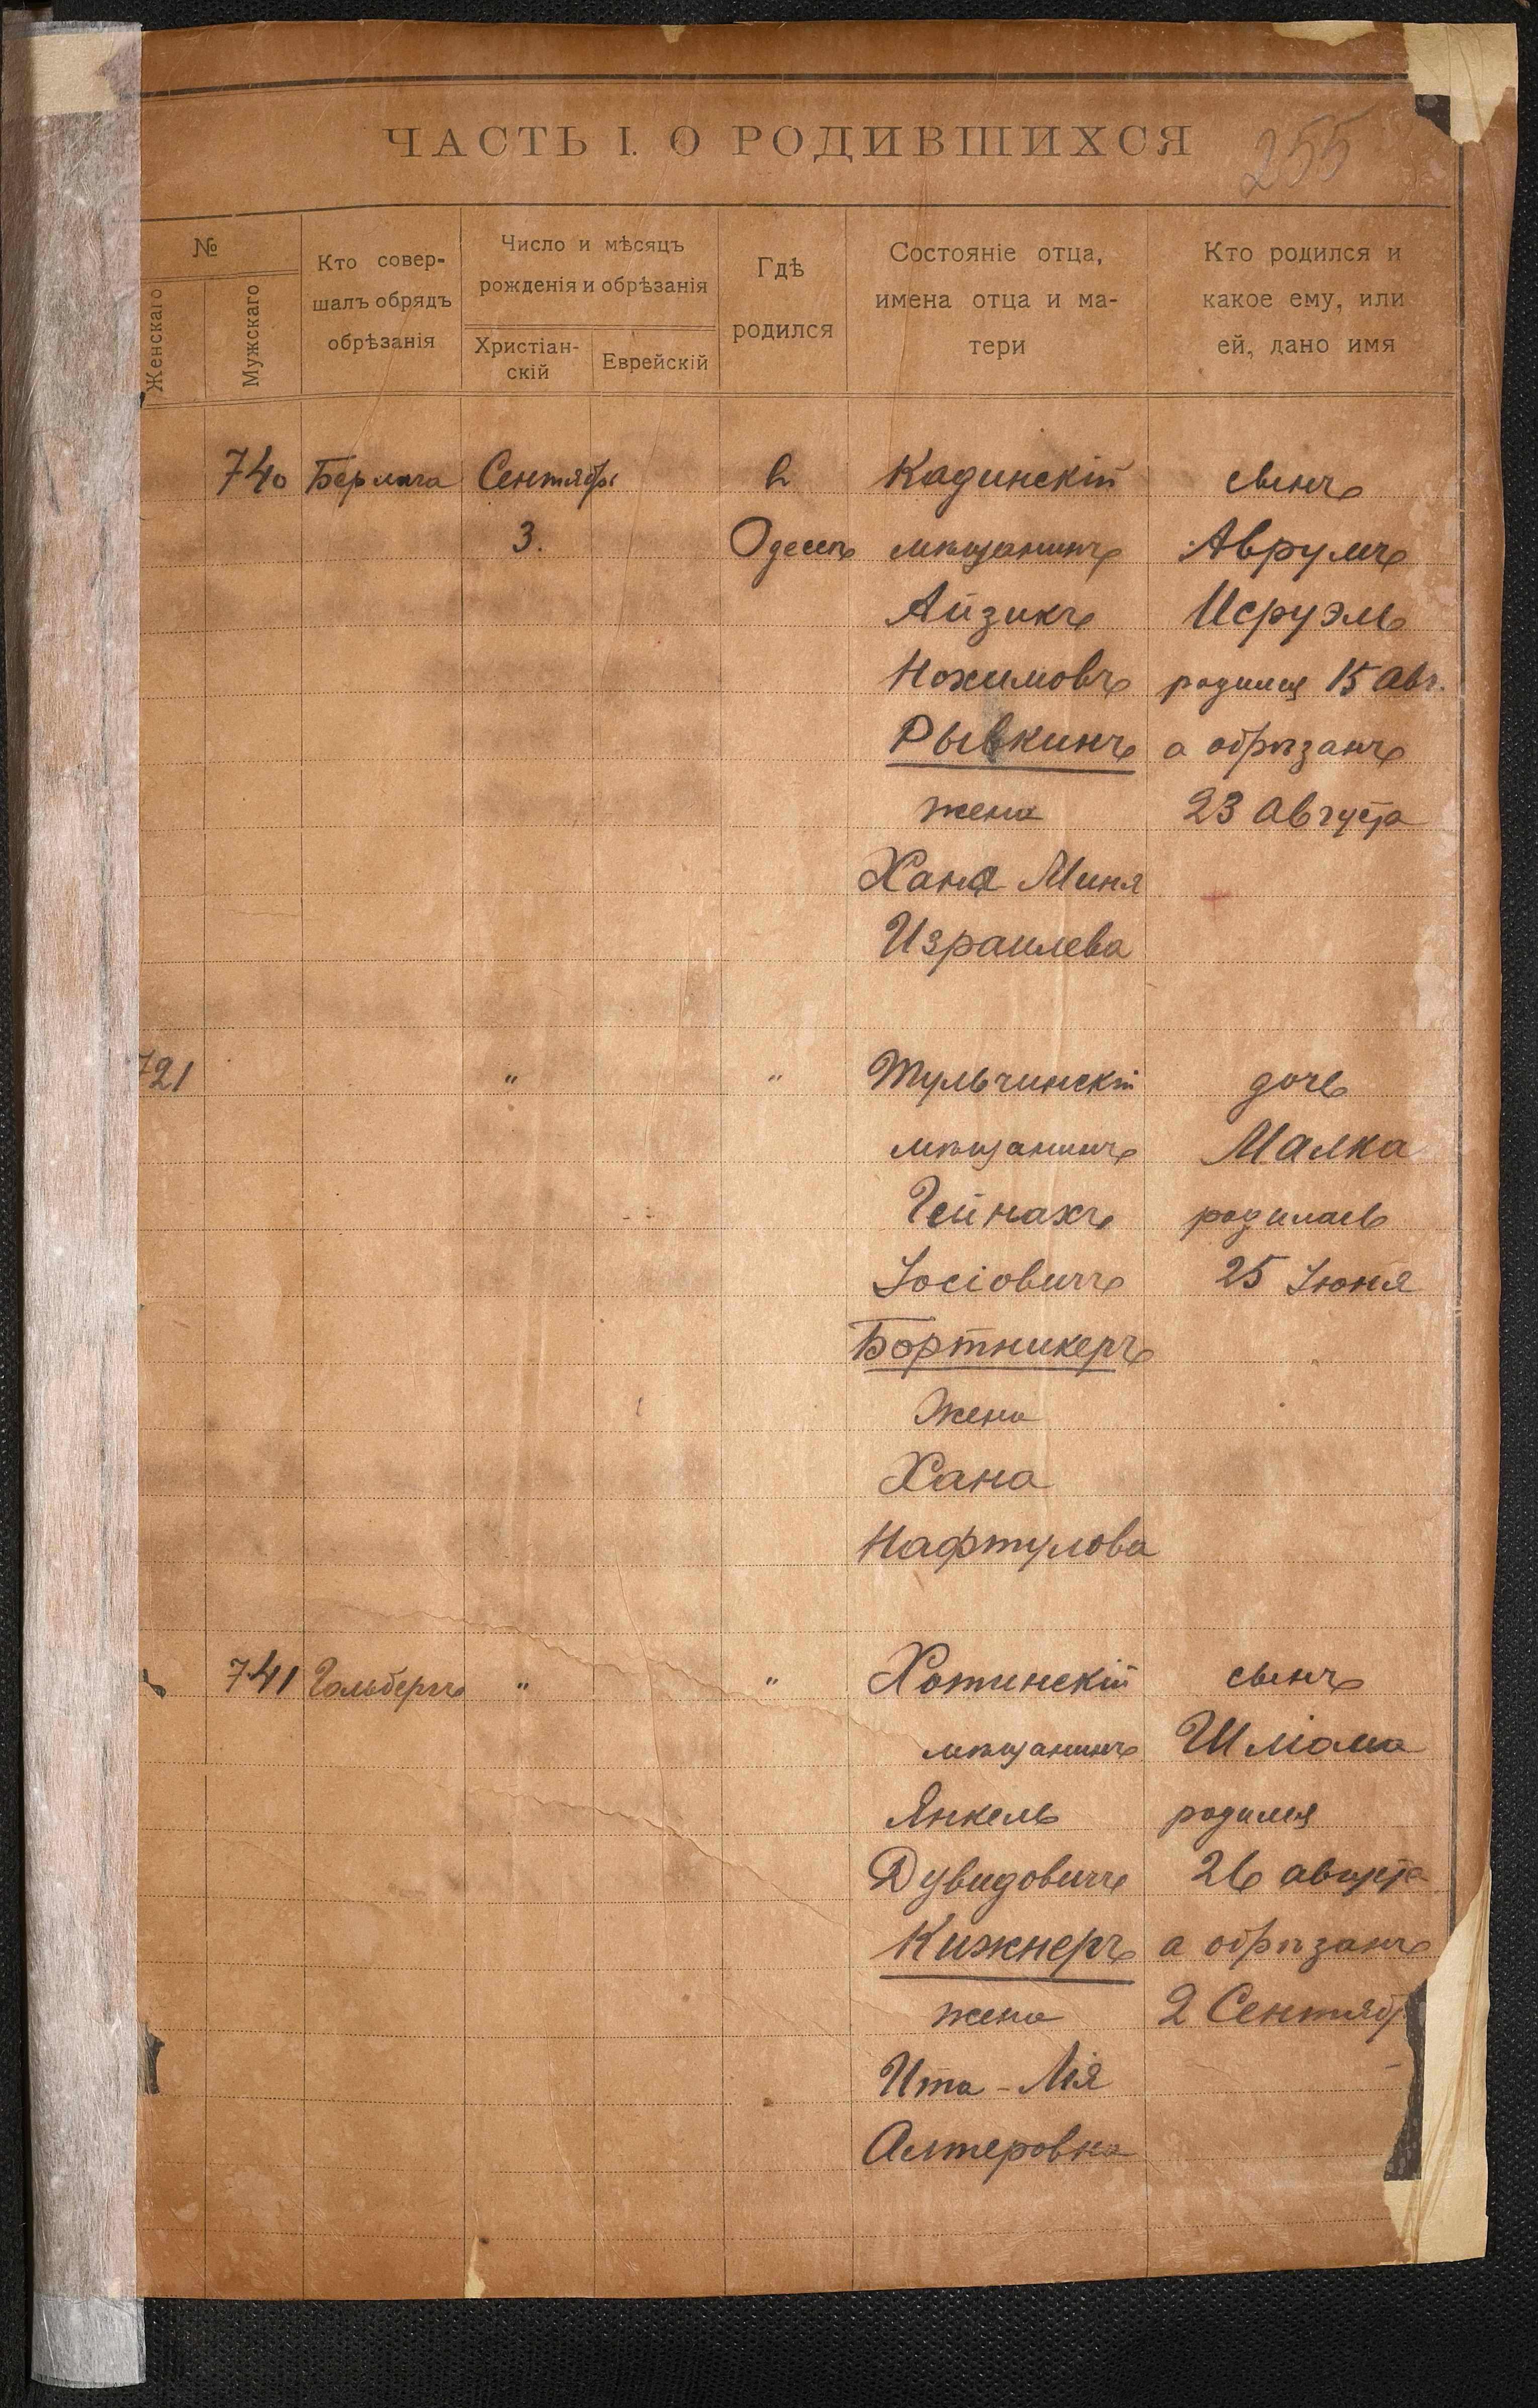 ЧАСТЬ I. О РОДИВШИХСЯ
255
№
Женскаго
Мужскаго
Кто совер-
шалъ обрядъ
обрѣзанія
Число и мѣсяцъ
рожденія и обрѣзанія
Христіан-
скій
Еврейскій
Гдѣ
родился
Состояніе отца,
имена отца и ма-
тери
Кто родился и
какое ему, или
ей, дано имя
740 Сентября в Кадинскій сынъ
3. Одессѣ мѣщанинъ Аврумъ
Айзикъ Исруэль
Нохимовъ родился 15 Авг.
Рывкинъ а обрѣзанъ
жена 23 Августа
Хана Миня
Израилева
721 " " Тульчинскій дочь
мѣщанинъ Малка
Гейнахъ родилась
Іосіовичъ 25 Іюня
Бортникеръ
Жена
Хана
Нафтулова
741 Гольбергъ " " Хотинскій сынъ
мѣщанинъ Шліома
Янкель родился
Дувидовичъ 26 августа
Кижнеръ а обрѣзанъ
жена 2 Сентяб
Ита-Лія
Алтеровна